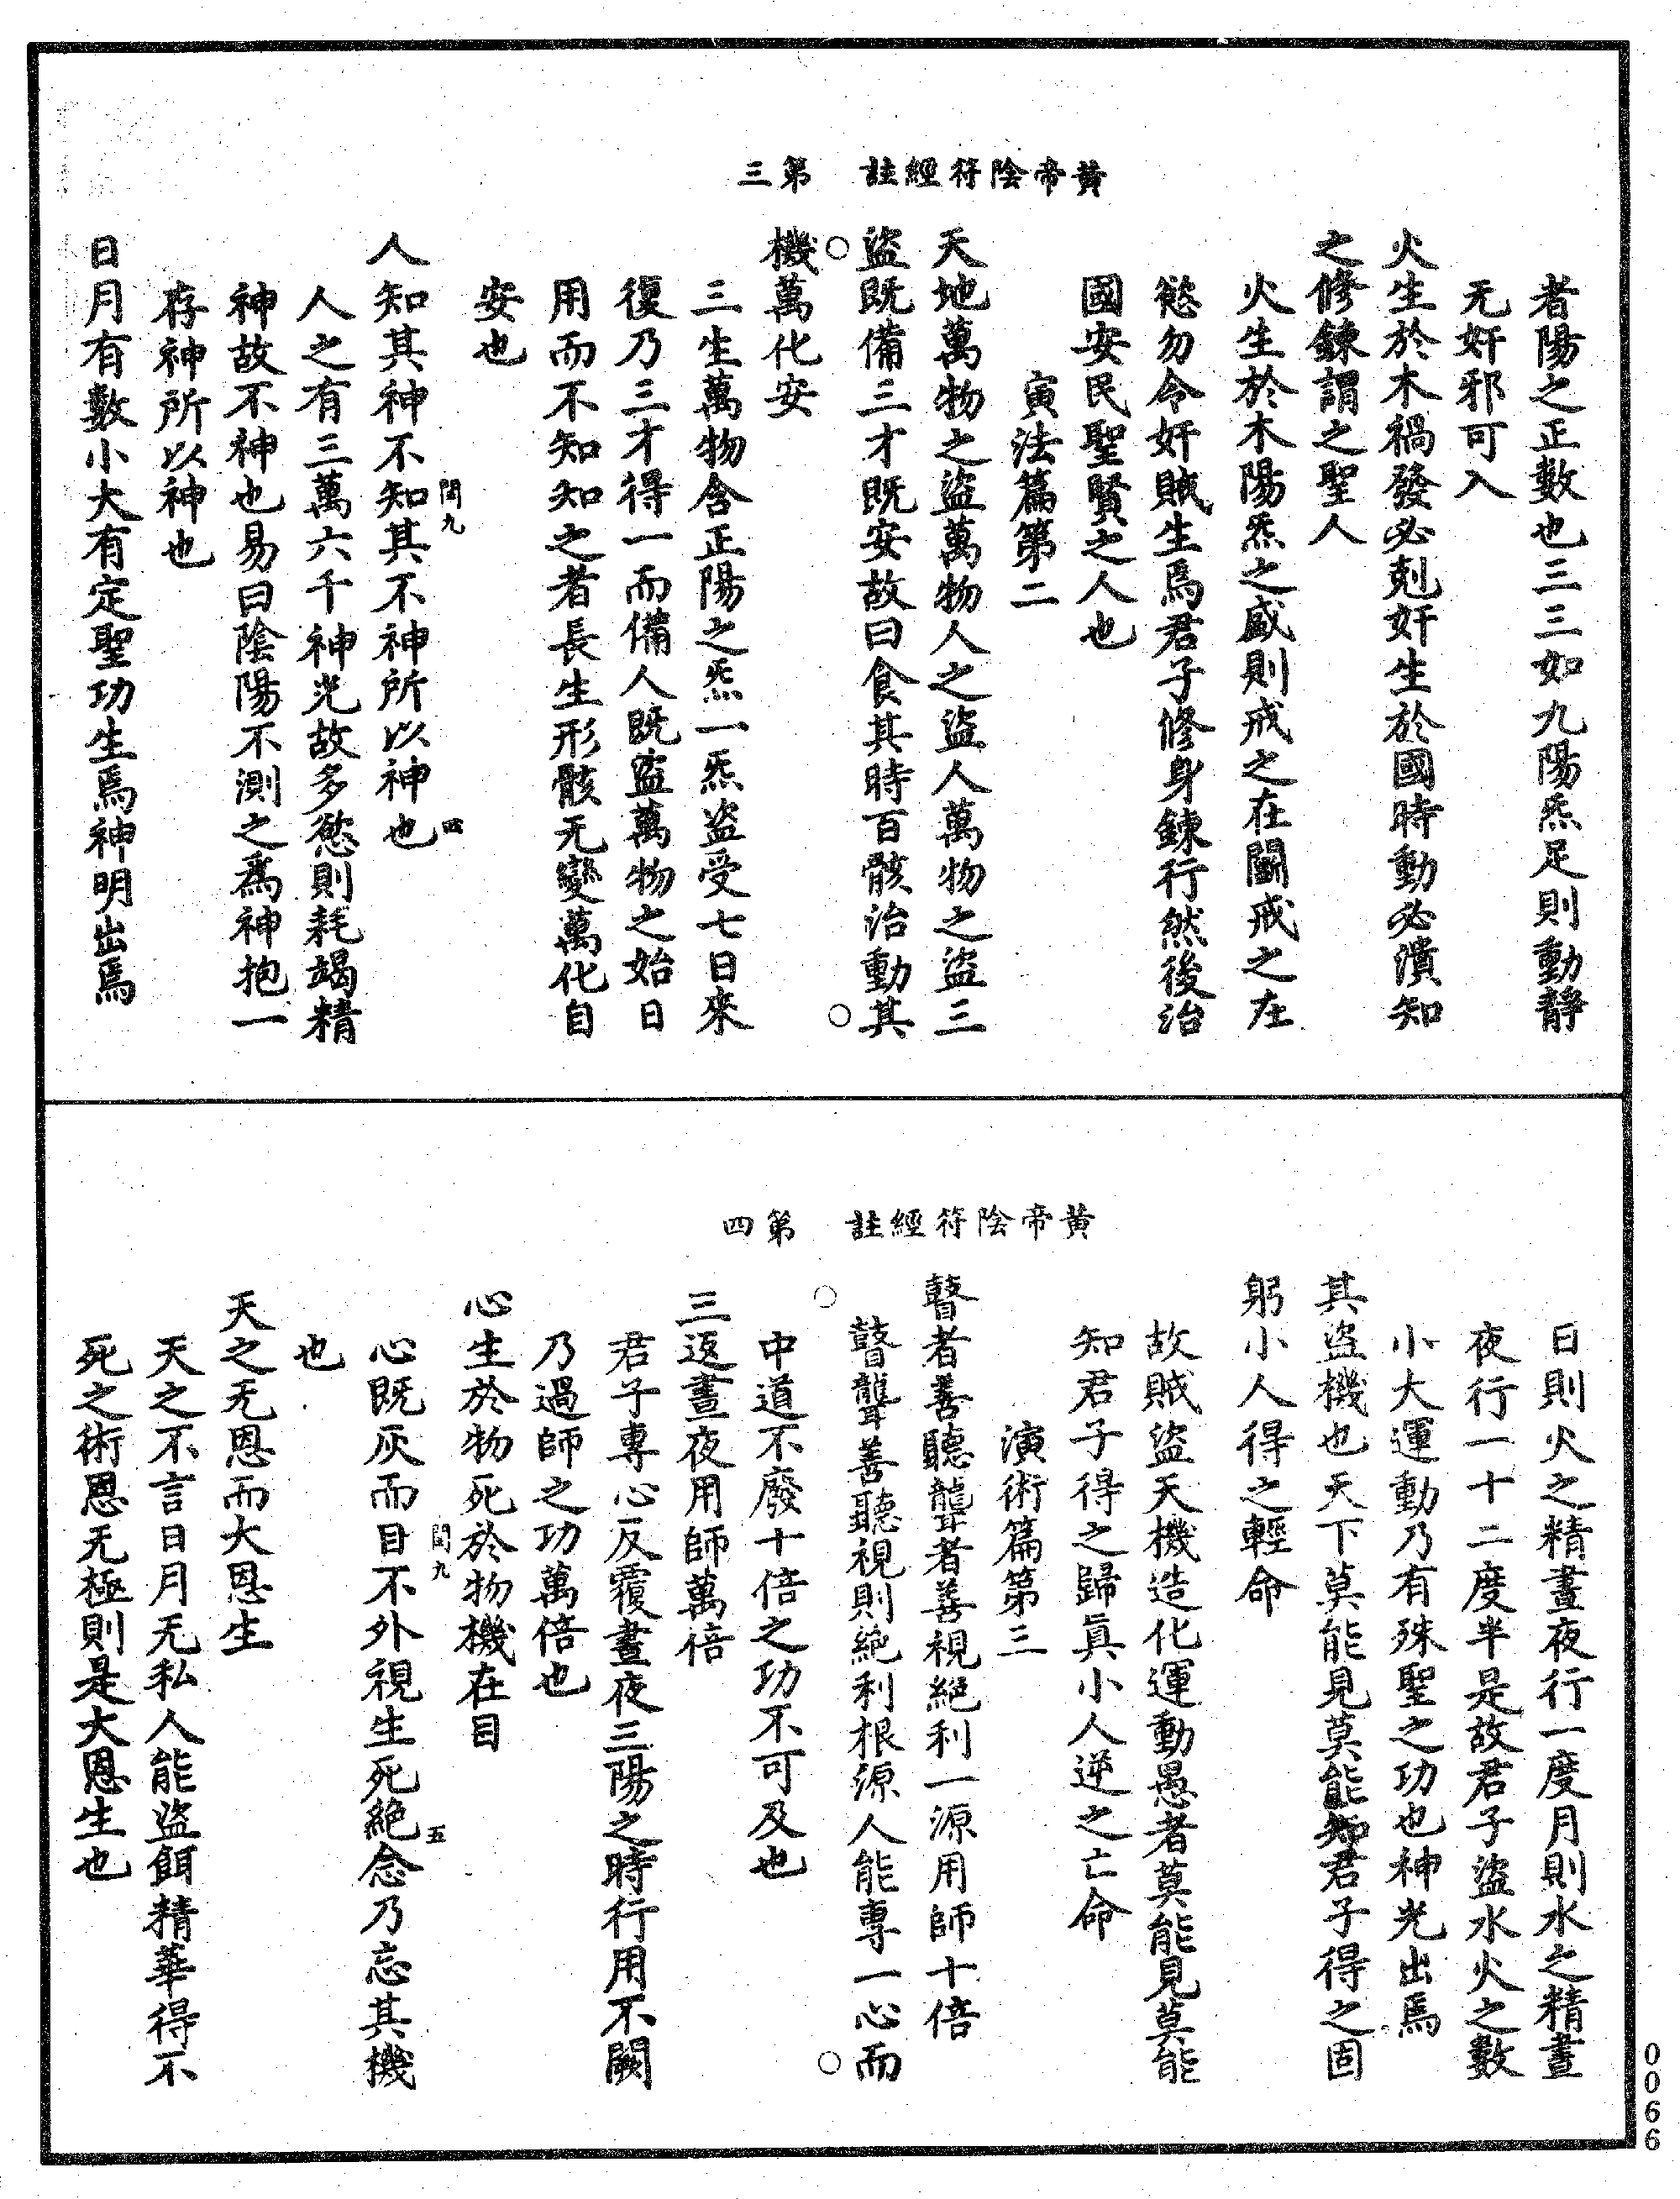 黃帝陰符經註　第三
者陽之正數也三三如九陽炁足則動靜
无奸邪可入
火生於木禍發必剋奸生於國時動必潰知
之修鍊謂之聖人
火生於木陽炁之盛則戒之在鬭戒之在
慾勿令奸賊生焉君子修身鍊行然後治
國安民聖賢之人也
寅法篇第二
天地萬物之盜萬物人之盜人萬物之盜三
盜既備三才既安故曰食其時百骸治動其
機萬化安
三生萬物含正陽之炁一炁盜受七日來
復乃三才得一而備人既盜萬物之始日
用而不知知之者長生形骸无變萬化自
安也
閏九
四
人知其神不知其不神所以神也
人之有三萬六千神光故多慾則耗竭精
神故不神也易曰陰陽不測之爲神抱一
存神所以神也
日月有數小大有定聖功生焉神明出焉
黃帝陰符經註　第四
日則火之精晝夜行一度月則水之精晝
夜行一十二度半是故君子盜水火之數
小大運動乃有殊聖之功也神光出焉
其盜機也天下莫能見莫能知君子得之固
躬小人得之輕命
故賊盜天機造化運動愚者莫能見莫能
知君子得之歸眞小人逆之亡命
演術篇第三
瞽者善聽聾者善視絕利一源用師十倍
瞽聾善聽視則絕利根源人能專一心而
中道不廢十倍之功不可及也
三返晝夜用師萬倍
君子專心反覆晝夜三陽之時行用不闕
乃過師之功萬倍也
心生於物死於物機在目
閏九
五
心既灰而目不外視生死絕念乃忘其機
也
天之无恩而大恩生
天之不言日月无私人能盜餌精華得不
死之術恩无極則是大恩生也
0066